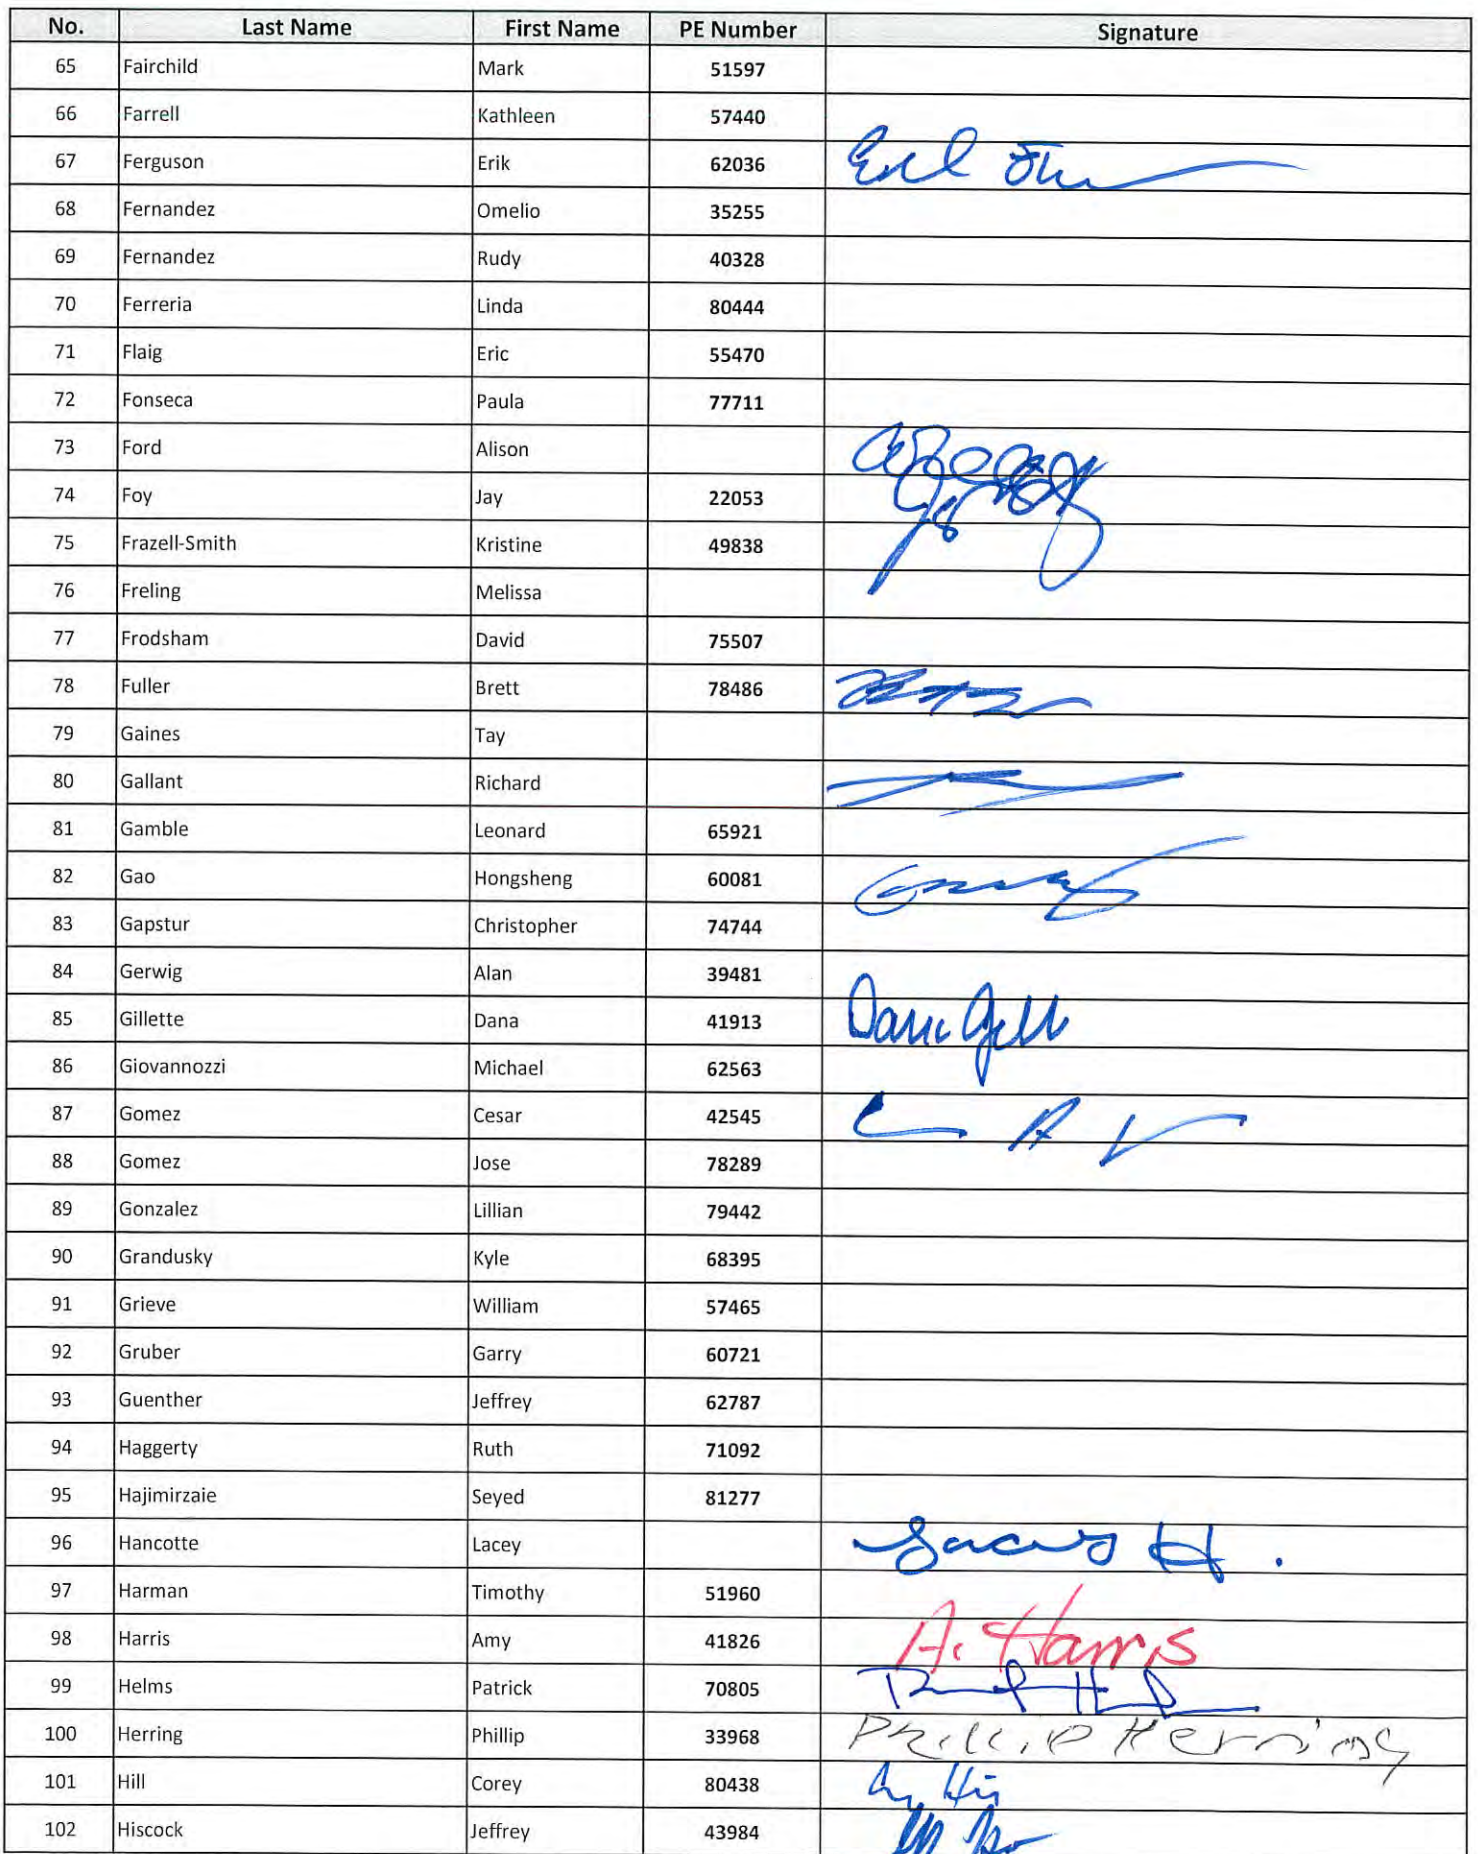 No. Last Name First Name PE Number Signature
65 Fairchild Mark 51597
66 Farrell Kathleen 57440
67 Ferguson Erik 62036
68 Fernandez Omelio 35255
69 Fernandez Rudy 40328
70 Ferreria Linda 80444
71 Flaig Eric 55470
72 Fonseca Paula 77711
73 Ford Alison
74 Foy Jay 22053
75 Frazell-Smith Kristine 49838
76 Freling Melissa
77 Frodsham David 75507
78 Fuller Brett 78486
79 Gaines Tay
80 Gallant Richard
81 Gamble Leonard 65921
82 Gao Hongsheng 60081
83 Gapstur Christopher 74744
84 Gerwig Alan 39481
85 Gillette Dana 41913
86 Giovannozzi Michael 62563
87 Gomez Cesar 42545
88 Gomez Jose 78289
89 Gonzalez Lillian 79442
90 Grandusky Kyle 68395
91 Grieve William 57465
92 Gruber Garry 60721
93 Guenther Jeffrey 62787
94 Haggerty Ruth 71092
95 Hajimirzaie Seyed 81277
96 Hancotte Lacey Lacey H.
97 Harman Timothy 51960
98 Harris Amy 41826 A. Harris
99 Helms Patrick 70805
100 Herring Phillip 33968 Phillip Herring
101 Hill Corey 80438
102 Hiscock Jeffrey 43984